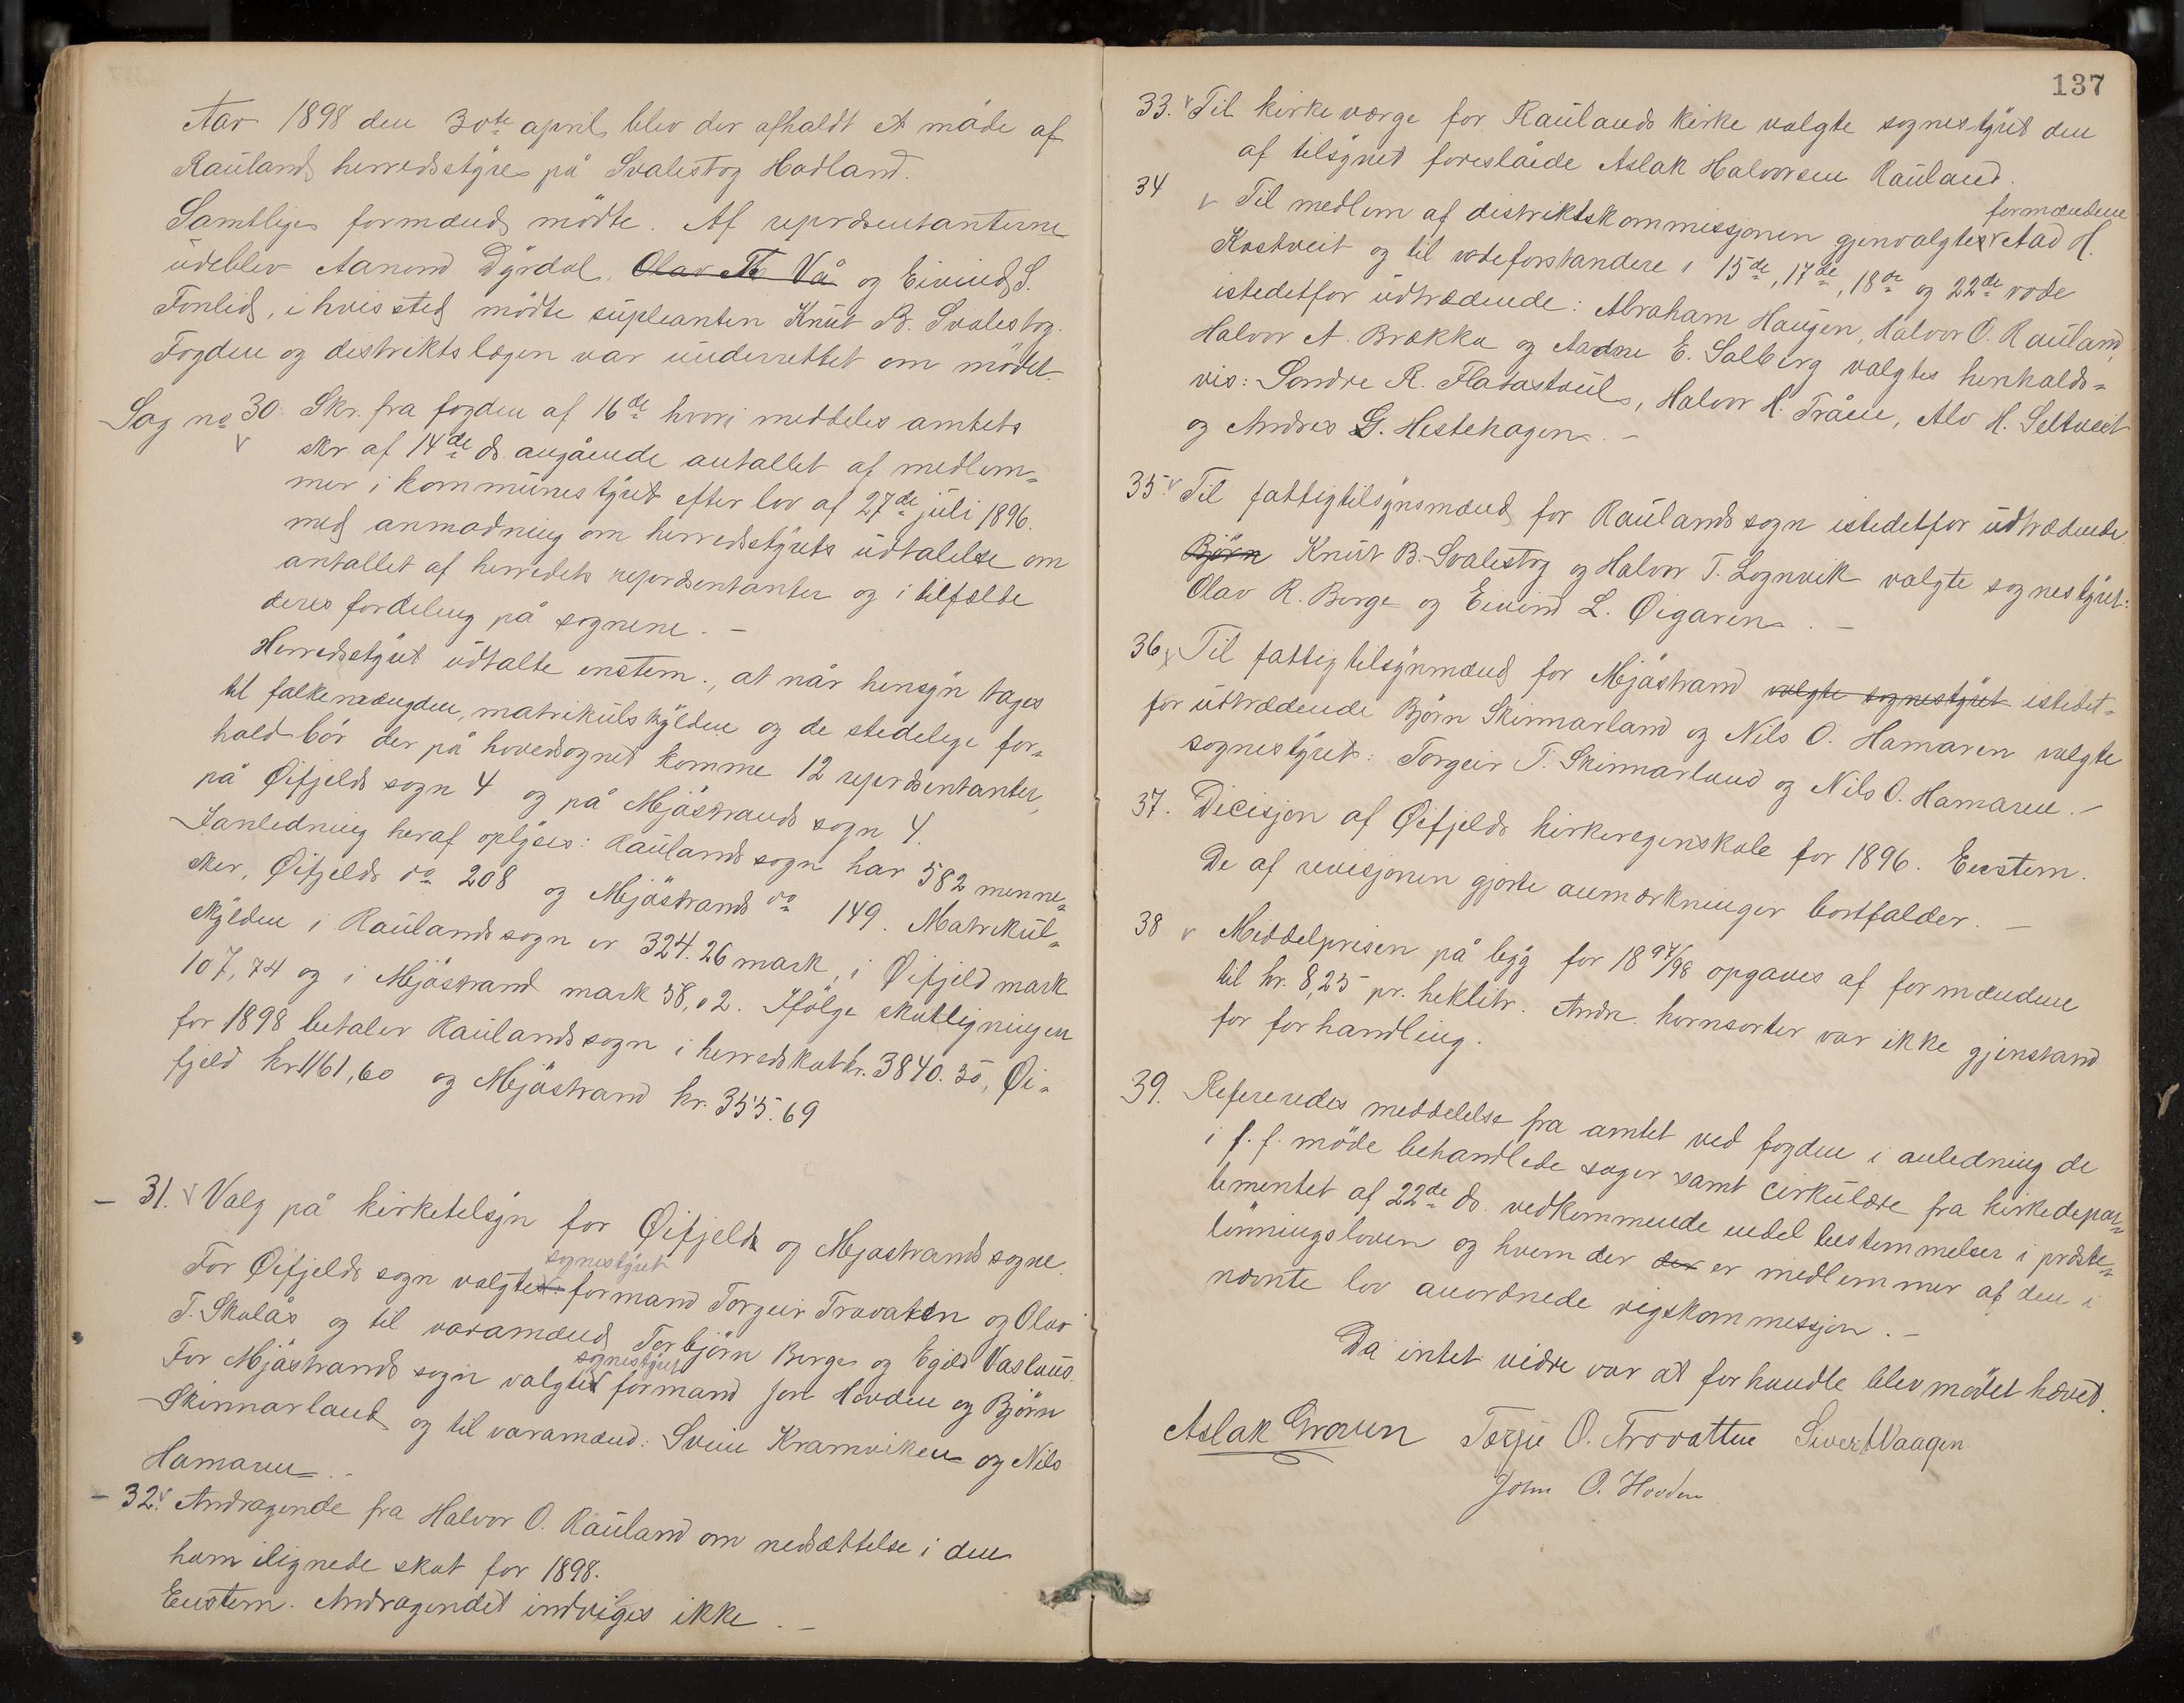 Aar 1898 den 30te april blev der afholdt et møde af
Raulands herredsstyre på Svalestog Hadland.
Samtlige formænd mödte. Af repræsentanterne
udeblev Aanond Dyrdal, Olav Th Vå og Eivind S.
Tonlid, i hvis sted mödte supleanten Knut B. Svalestog.
Fogden og distriktslægen var underrettet om mödet.
Sag no 30. Skr. fra fogden af 16de hvori meddeles amtets
skr. af 14de ds. angående antallet af medlem-
mer i kommunestyret efter lov af 27de juli 1896.
med anmodning om herredsstyrets udtalelse om
antallet af herredets repræsentanter og i tilfælde
deres fordeling på sognene. —
Herredsstyret udtalte enstem., at når hensyn tages
til folkemængden, matrikulskylden og de stedelige for-
hold bör der på hovedsognet komme 12 repræsentanter,
på Øifjelds sogn 4 og på Mjöstrands sogn 4.
I anledning heraf oplyses: Raulands sogn har 582 menne-
sker, Øifjelds do 208 og Mjöstrands do 149. Matrikul-
skylden i Raulands sogn er 324.26 mark, i Øifjeld mark
107,74 og i Mjöstrand mark 58,02. Ifölge skatligningen
for 1898 betaler Raulands sogn i herredskat kr. 3840.35, Øi-
fjeld kr 1161,60 og Mjöstrand kr. 355.69
— 31. v Valg på kirketilsyn for Øifjelds og Mjostrands sogne.
sognestyret
For Øifjelds sogn valgtes formand Torgeir Trovaten og Olav
T. Skalås og til varamænd Torbjörn Berge og Egild Vaslaus.
sognestyret
For Mjöstrands sogn valgtes formand Jon Hovden og Björn
Skinnarland og til varamænd: Svein Kramviken og Nils
Hamaren. —
— 32. v Andragende fra Halvor O. Rauland om nedsættelse i den
ham ilignede skat for 1898.
Enstem. Andragendet indvilges ikke. —
137
33. v Til kirkeværge for Raulands kirke valgte sognestyret den
af tilsynet foreslåede Aslak Halvorsen Rauland.
formændene
34 v Til medlem af distriktskommissjonen gjenvalgtes v Aad H.
Kostveit og til rodeforstandere i 15de, 17de, 18de og 22de rode
istedetfor udtrædende: Abraham Haugen, Halvor O. Rauland,
Halvor A. Brække og Aadne E. Solberg valgtes henholds-
vis: Sondre R. Flatastöul, Halvor H. Tråen, Alv H. Seltveit
og Andres G. Hestehagen. —
35. v Til fattigtilsynsmænd for Raulands sogn istedetfor udtrædende
Björn Knut B. Svalestog og Halvor T. Lognvik valgte sognestyret:
Olav R. Berge og Eivind L. Øigaren. —
36 v Til fattigtilsynmænd for Mjöstrand valgte sognestyret istedet-
for udtrædende Björn Skinnarland og Nils O. Hamaren valgte
sognestyret: Torgeir T. Skinnarland og Nils O. Hamaren. —
37. Dicisjon af Øifjelds kirkeregnskab for 1896. Enstem.
De af revisjonen gjorte anmærkninger bortfalder. —
38 v Middelprisen på byg for 1897/98 opgaves af formændene
til kr. 8,25 pr. hektlitr. Andr. kornsorter var ikke gjenstand
for forhandling.
39. Refereredes meddelelse fra amtet ved fogden i anledning de
i f. f. möde behandlede sager samt cirkulære fra kirkedepar-
tementet af 22de ds. vedkommende endel bestemmelser i præste-
lönningsloven og hvem der der er medlemmer af den i
nævnte lov anordnede rigskommissjon. —
Da intet vidre var at forhandle blev mödet hævet.
Aslak Groven Torju O. Trovatten Sivert Vaagen
John O. Hovden